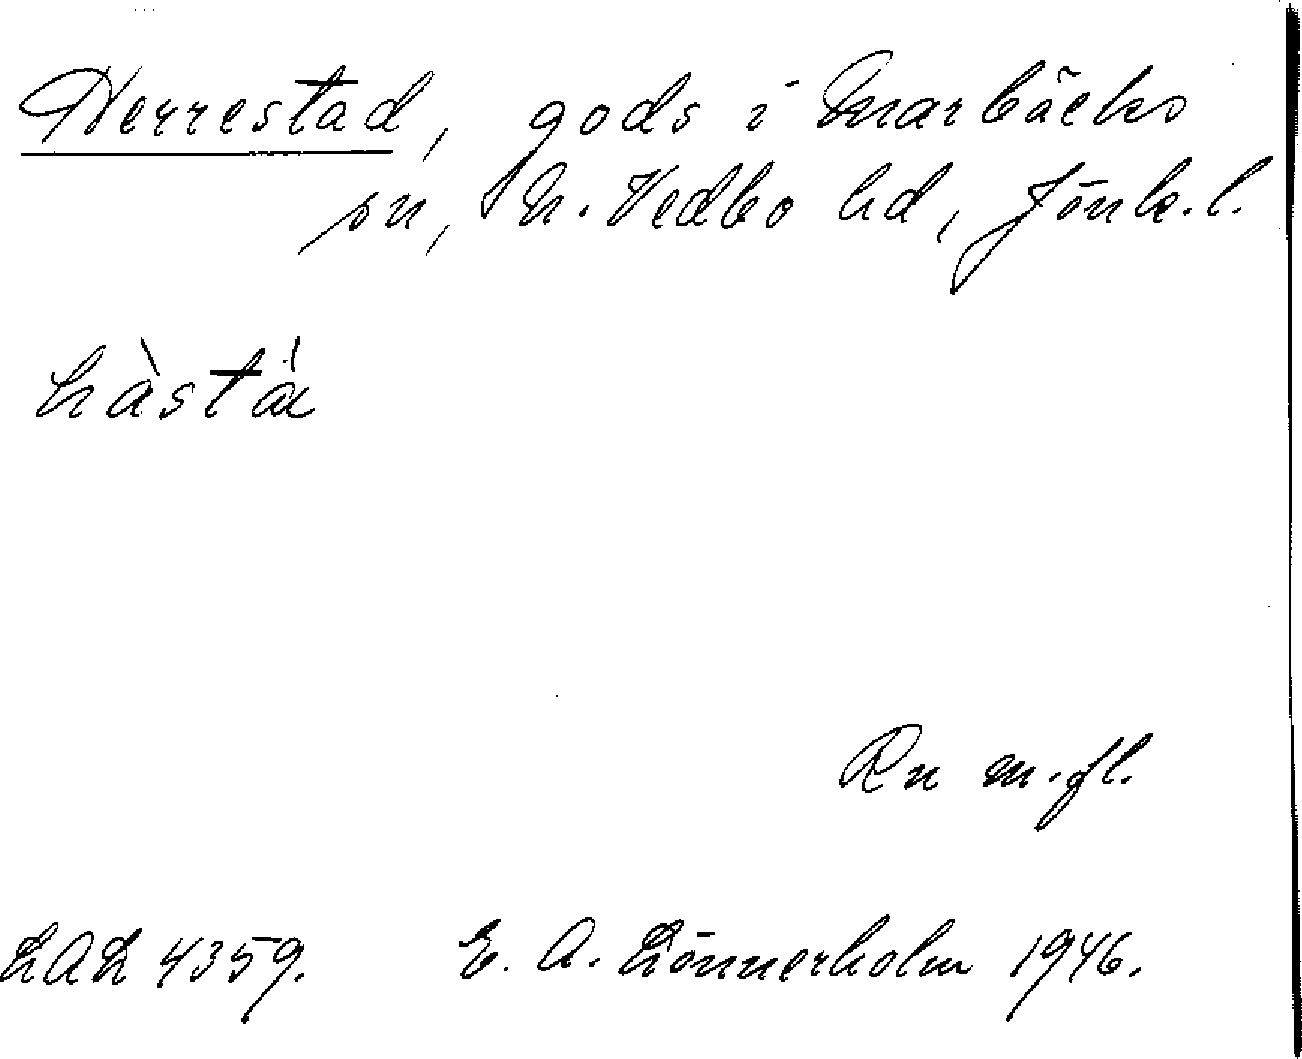 Herrestad, gods i Marbäcks
sn, N. Vedbo hd, Jönk.l.
hàstá
Rn m.fl.
LAL 4359. E. A. Lönnerholm 1946.